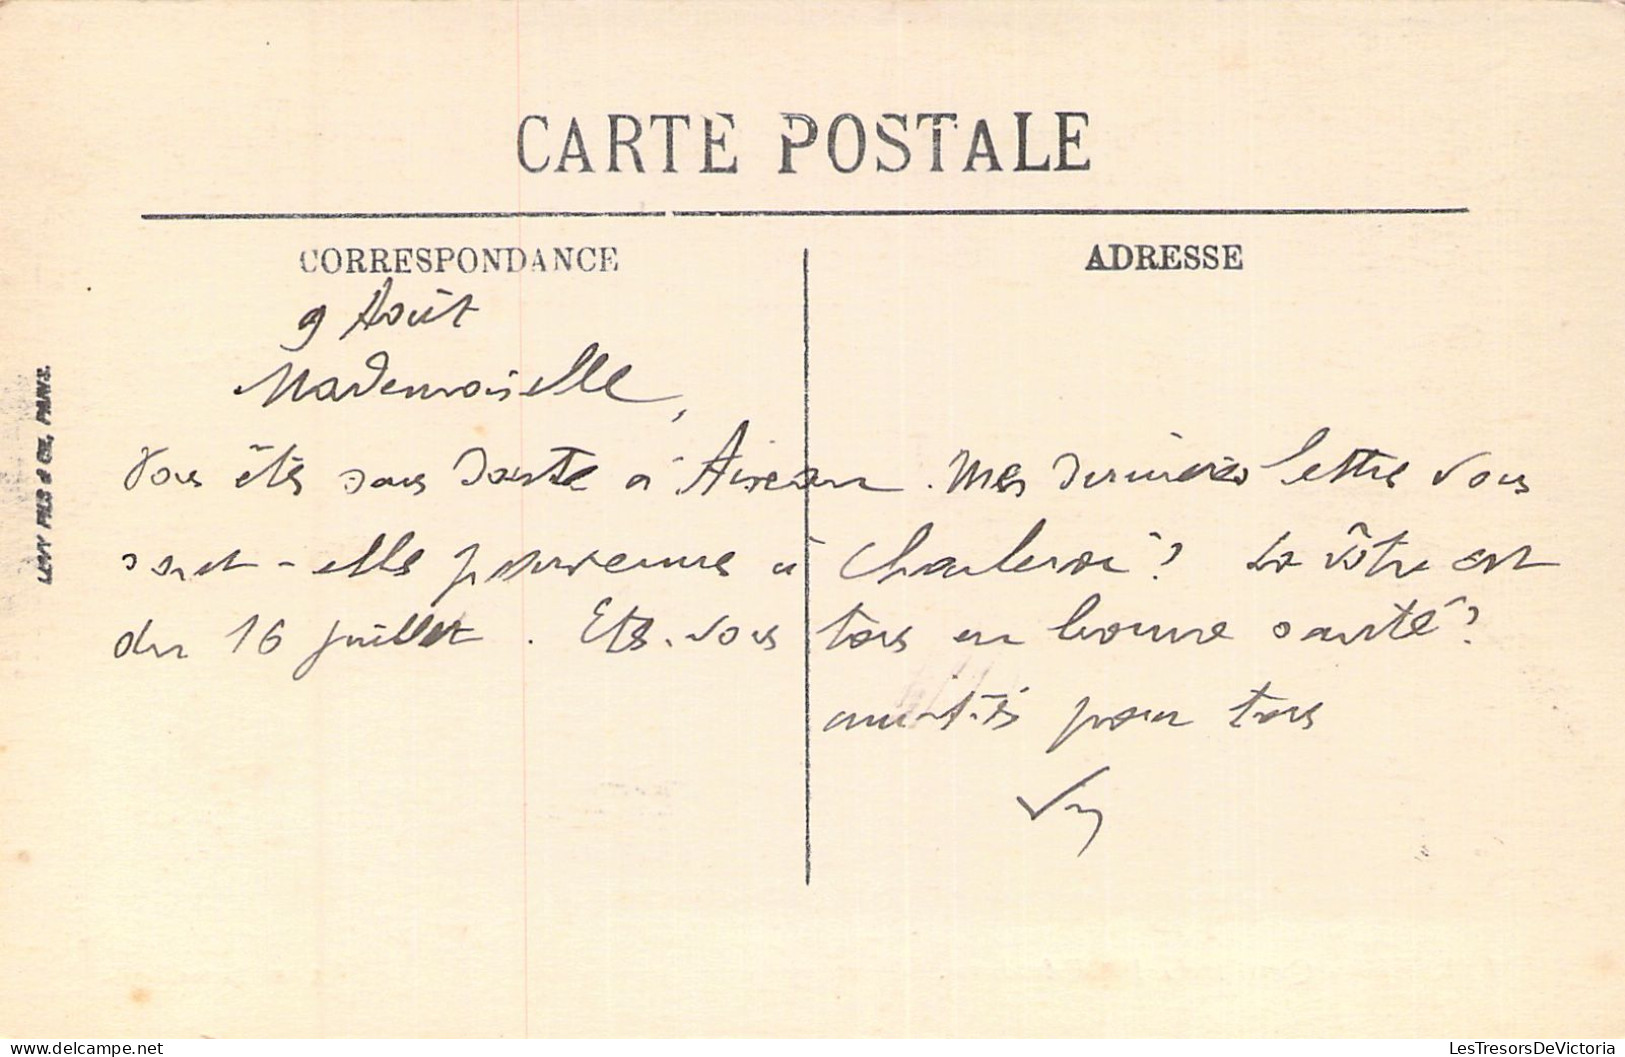 CARTE POSTALE
CORRESPONDANCE
ADRESSE
9 Août
Mademoiselle,
Vous êtes sans doute à Aiseau. Mes dernières lettre vous
sont-elle parvenue à Charleroi? La vôtre est
du 16 juillet. Etes-vous tous en bonne santé?
amitiés pour tous
LEVY FILS & CIE, PARIS.
LesTresorsDeVictoria